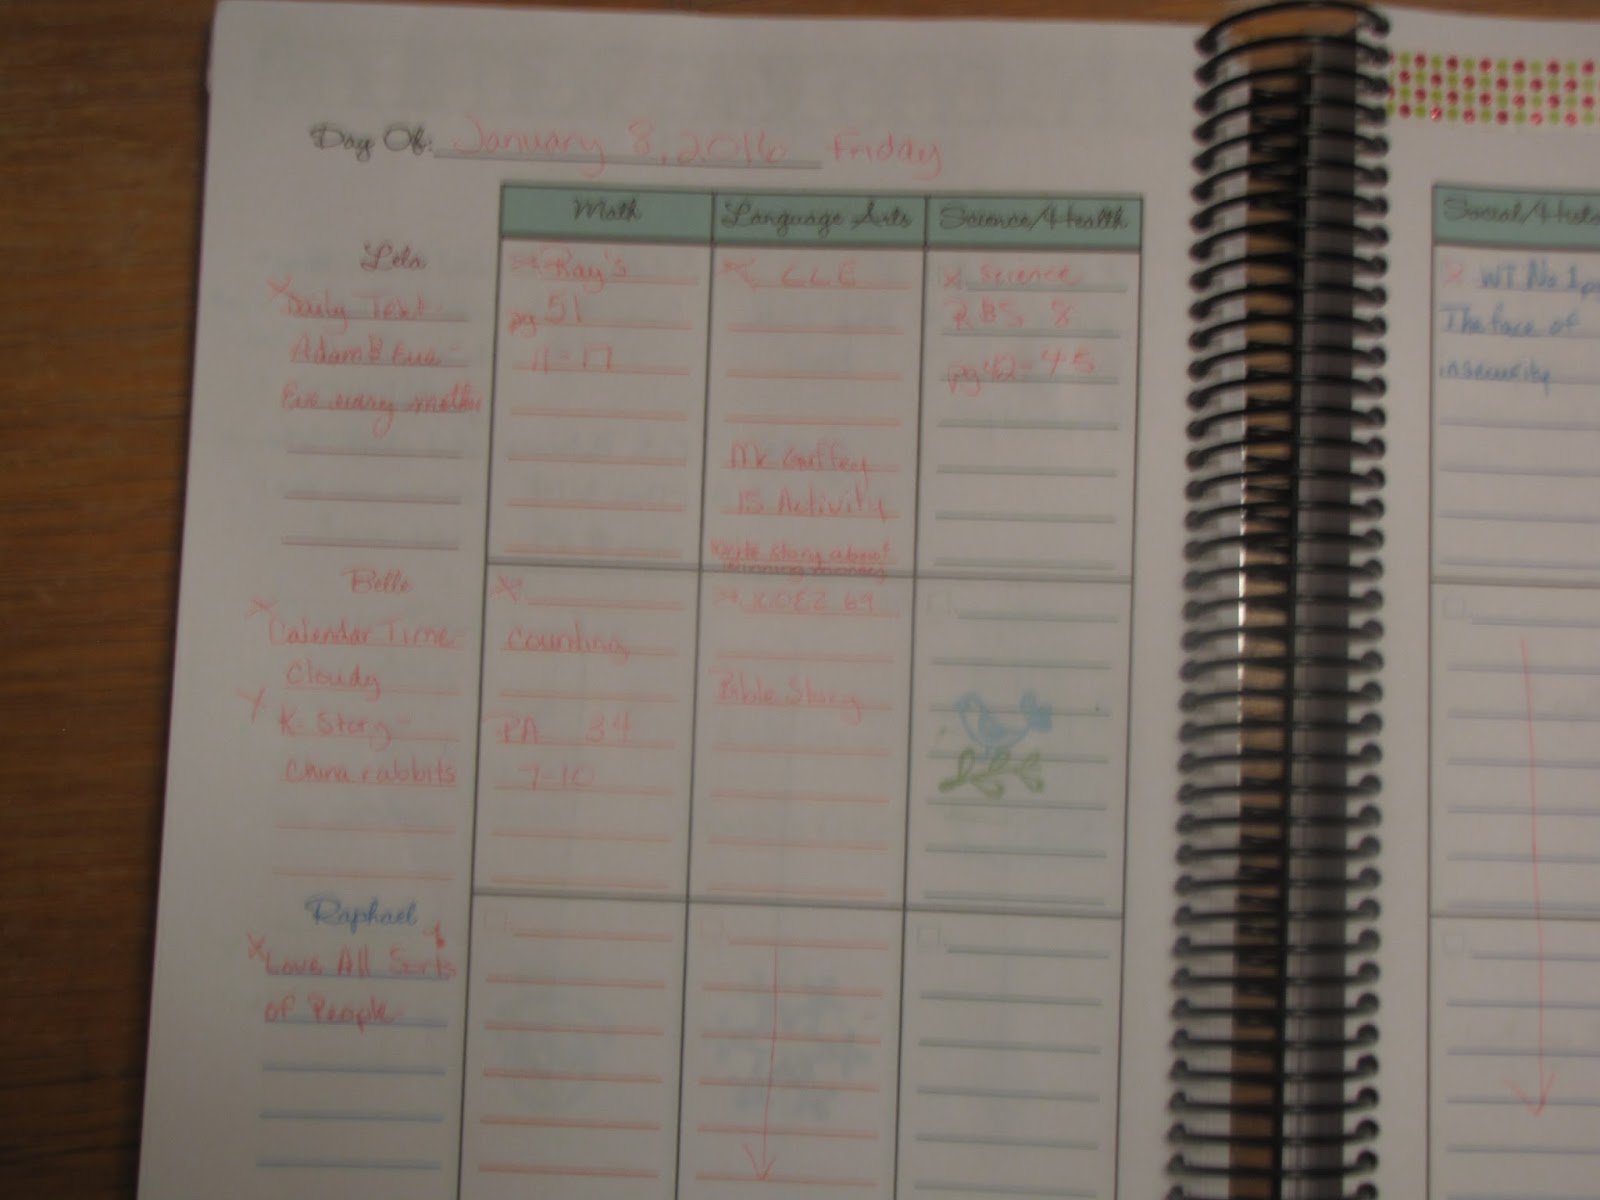 Day Of: January 8, 2016 Friday
Math
Language Arts
Science/Health
Lela
Daily Text-
Adam & Eve-
Ray's
pg 51
11-17
LLE
Mc Guffey
15 Activity
Write story about
Science
RBS 8
pg 42-45
Belle
Calendar Time-
Cloudy
K-Story-
China rabbits
Counting
PA 34
7-10
69
Bible Story
Raphael
Love All Sorts
of People-
WT No 1
The face of
insecurity